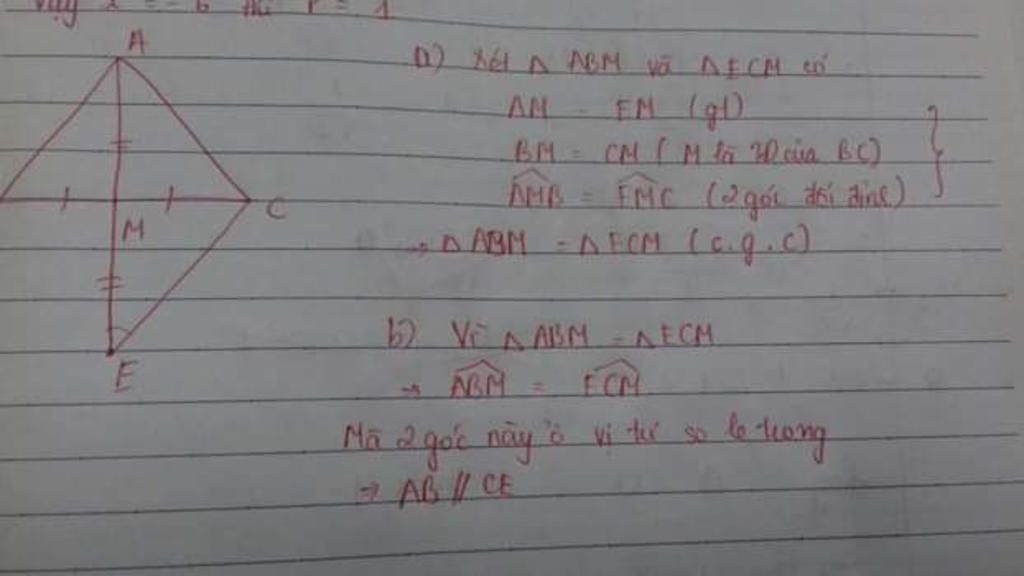 Vậy x = - 6 thì P = 1
A
M
C
E
a) Xét Δ ABM và Δ ECM có
AM = EM (gt)
BM = CM ( M là TĐ của BC)
AMB = EMC (2 góc đối đỉnh)
→ Δ ABM = Δ ECM (c.g.c)
b) Vì Δ ABM = Δ ECM
→ ABM = ECM
Mà 2 góc này ở vị trí so le trong
⇒ AB // CE